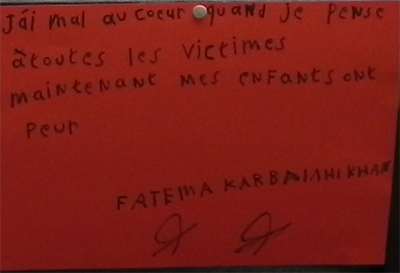 J'ai mal au coeur quand je pense
à toutes les victimes
maintenant mes enfants ont
peur
FATEMA KARBALAHIKHAN